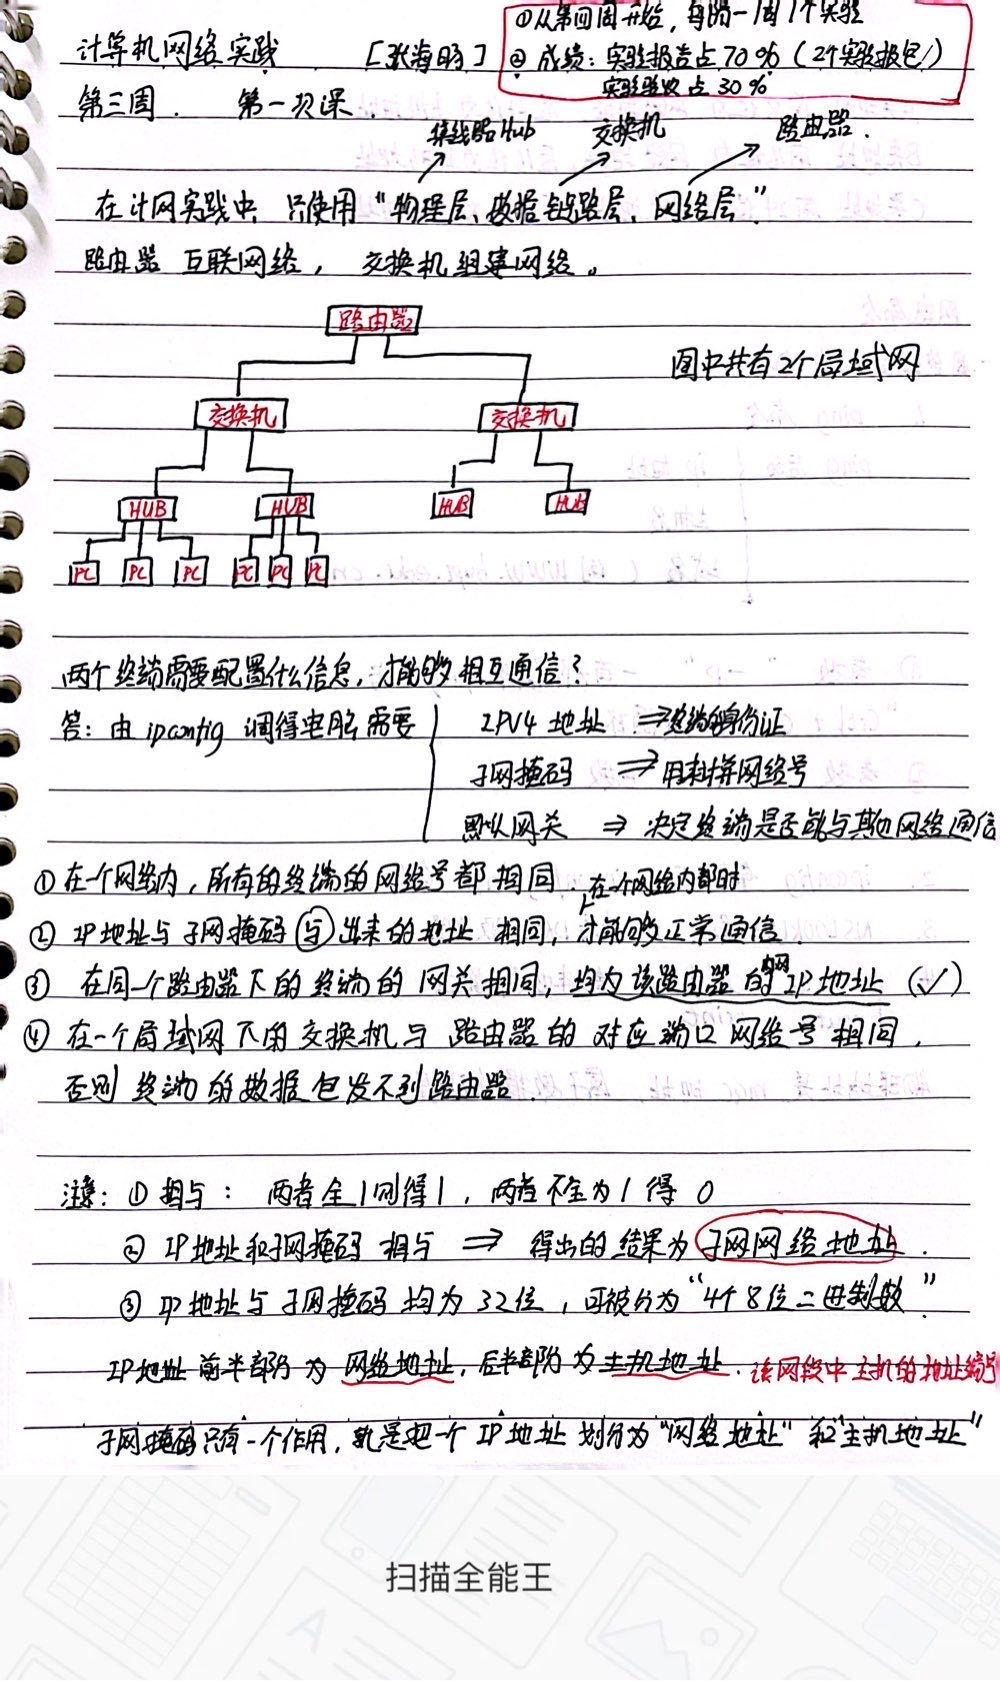 ①从第四周开始，每隔一周1个实验
计算机网络实践 [张海旸] ② 成绩：实验报告占70%（2个实验报告）
实验验收占30%
第三周. 第一次课.
集线器Hub 交换机 路由器.
在计网实践中 只使用“物理层、数据链路层、网络层”
路由器 互联网络， 交换机组建网络。
路由器
图中共有2个局域网
交换机 交换机
HUB HUB HUB HUB
PC PC PC PC PC PC
两个终端需要配置什么信息，才能够相互通信？
答：由ipconfig 调得电脑需要 IPV4 地址 ⇒终端的身份证
子网掩码 ⇒ 用来拼网络号
默认网关 ⇒ 决定终端是否能与其他网络通信
① 在一个网络内，所有的终端的网络号都相同. 在一个网络内部时
② IP地址与子网掩码(与)出来的地址 相同，才能够正常通信.
③ 在同一个路由器下的终端的网关相同，均为该路由器的内网IP地址 (✓)
④ 在一个局域网下的交换机与 路由器的 对应端口 网络号相同，
否则 终端的数据包发不到路由器.
注意：① 相与： 两者全1则得1，两者不全为1得 0
② IP地址和子网掩码 相与 ⇒ 得出的结果为 子网网络地址.
③ IP地址与子网掩码 均为32位，可被分为“4个8位二进制数”
IP地址前半部分为网络地址，后半部分为主机地址. 该网段中主机的地址编号
子网掩码只有一个作用，就是把一个IP地址划分为“网络地址”和“主机地址”
扫描全能王